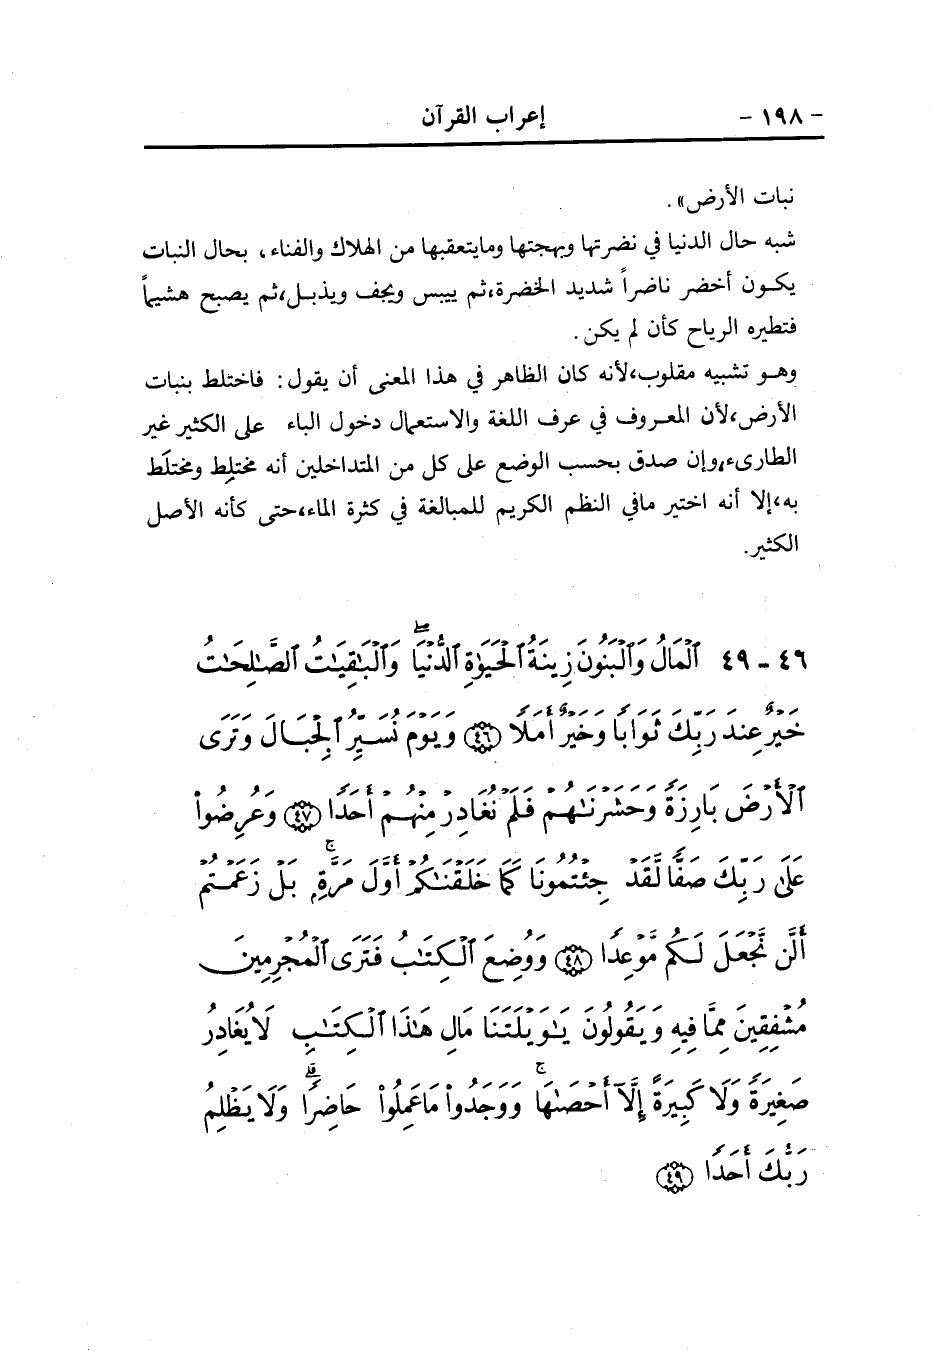 - ١٩٨ - إعراب القرآن
نبات الأرض» .
شبه حال الدنيا في نضرتها وبهجتها ومايتعقبها من الهلاك والفناء، بحال النبات
يكون أخضر ناضراً شديد الخضرة،ثم ييبس ويجف ويذبل،ثم يصبح هشيماً
فتطيره الرياح كأن لم يكن.
وهو تشبيه مقلوب،لأنه كان الظاهر في هذا المعنى أن يقول: فاختلط بنبات
الأرض،لأن المعروف في عرف اللغة والاستعمال دخول الباء على الكثير غير
الطارىء،وإن صدق بحسب الوضع على كل من المتداخلين أنه مختلِط ومختلَط
به،إلا أنه اختير مافي النظم الكريم للمبالغة في كثرة الماء،حتى كأنه الأصل
الكثير.
٤٦ - ٤٩ ٱلْمَالُ وَٱلْبَنُونَ زِينَةُ ٱلْحَيَوٰةِ ٱلدُّنْيَا ۖ وَٱلْبَٰقِيَٰتُ ٱلصَّٰلِحَٰتُ
خَيْرٌ عِندَ رَبِّكَ ثَوَابًا وَخَيْرٌ أَمَلًا ﴿٤٦﴾ وَيَوْمَ نُسَيِّرُ ٱلْجِبَالَ وَتَرَى
ٱلْأَرْضَ بَارِزَةً وَحَشَرْنَٰهُمْ فَلَمْ نُغَادِرْ مِنْهُمْ أَحَدًا ﴿٤٧﴾ وَعُرِضُوا۟
عَلَىٰ رَبِّكَ صَفًّا لَّقَدْ جِئْتُمُونَا كَمَا خَلَقْنَٰكُمْ أَوَّلَ مَرَّةٍۭ ۚ بَلْ زَعَمْتُمْ
أَلَّن نَّجْعَلَ لَكُم مَّوْعِدًا ﴿٤٨﴾ وَوُضِعَ ٱلْكِتَٰبُ فَتَرَى ٱلْمُجْرِمِينَ
مُشْفِقِينَ مِمَّا فِيهِ وَيَقُولُونَ يَٰوَيْلَتَنَا مَالِ هَٰذَا ٱلْكِتَٰبِ لَا يُغَادِرُ
صَغِيرَةً وَلَا كَبِيرَةً إِلَّآ أَحْصَىٰهَا ۚ وَوَجَدُوا۟ مَا عَمِلُوا۟ حَاضِرًا ۗ وَلَا يَظْلِمُ
رَبُّكَ أَحَدًا ﴿٤٩﴾